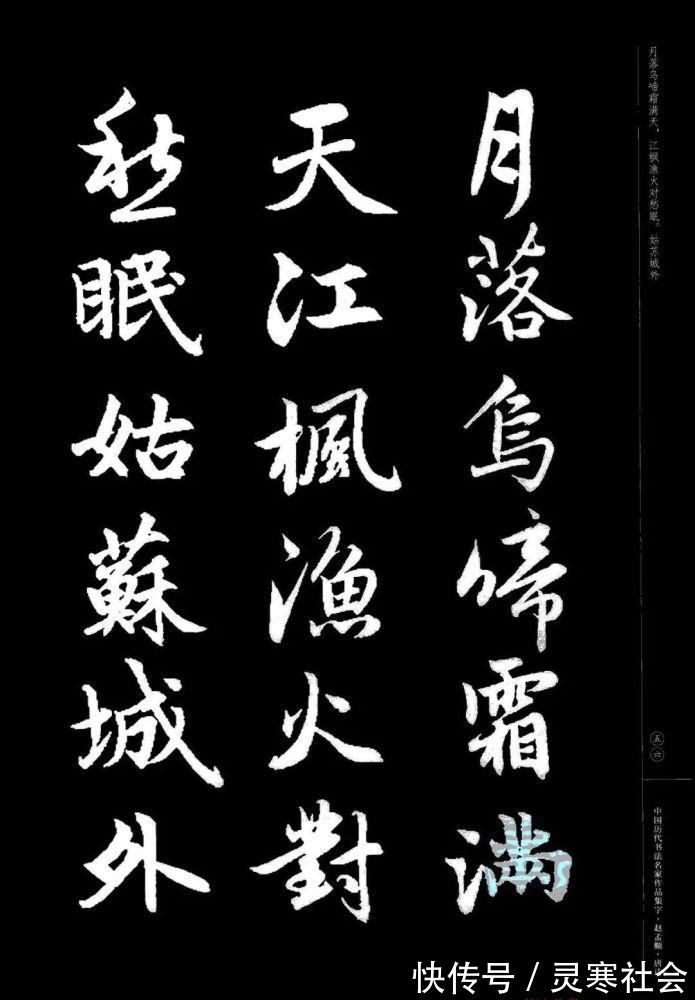 月落烏啼霜满
天江楓漁火對
愁眠姑蘇城外
月落乌啼霜满天，江枫渔火对愁眠。姑苏城外
五六
中国历代书法名家作品集字·赵孟頫·唐
快传号／灵寒社会